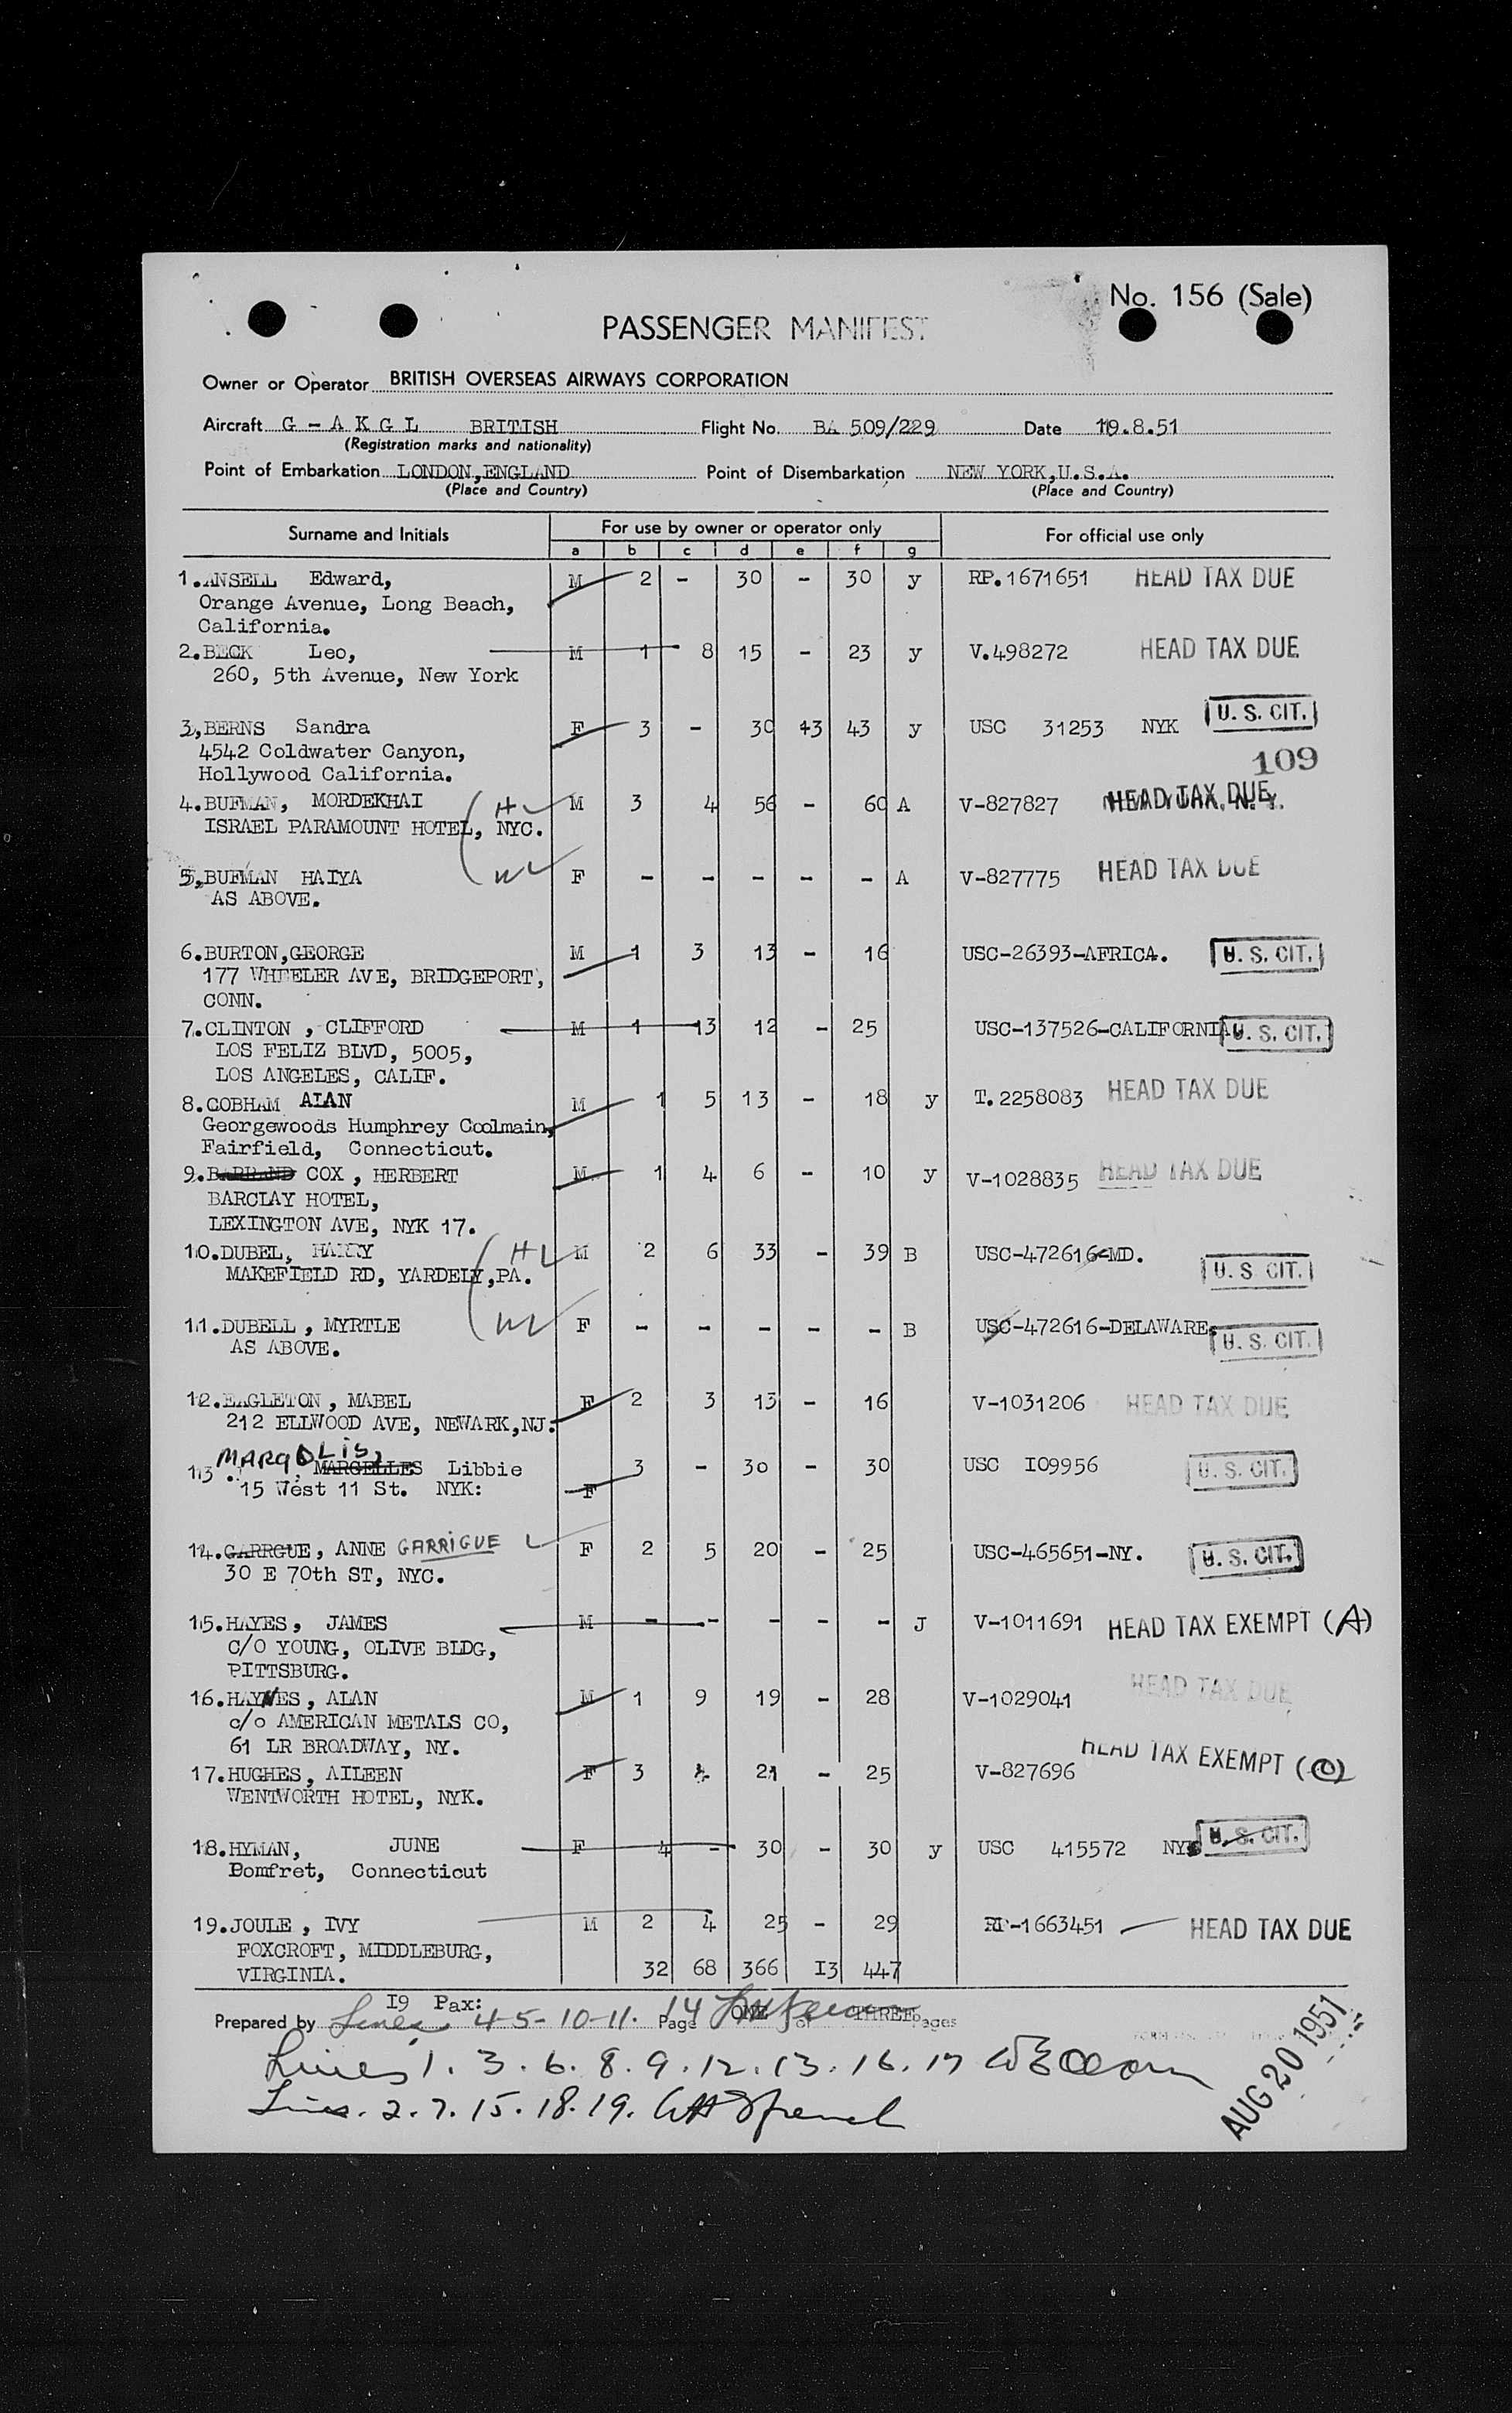 No. 156 (Sale)
PASSENGER MANIFEST
Owner or Operator BRITISH OVERSEAS AIRWAYS CORPORATION
Aircraft G - A K G L BRITISH Flight No. BA 509/229 Date 19.8.51
(Registration marks and nationality)
Point of Embarkation LONDON,ENGLAND Point of Disembarkation NEW YORK,U.S.A.
(Place and Country) (Place and Country)
Surname and Initials For use by owner or operator only For official use only
a b c d e f g
1.ANSELL Edward, M 2 - 30 - 30 y RP.1671651 HEAD TAX DUE
Orange Avenue, Long Beach,
California.
2.BECK Leo, M 1 8 15 - 23 y V.498272 HEAD TAX DUE
260, 5th Avenue, New York
3,BERNS Sandra F 3 - 30 13 43 y USC 31253 NYK U. S. CIT.
4542 Coldwater Canyon,
Hollywood California. 109
4.BUFMAN, MORDEKHAI H M 3 4 56 - 60 A V-827827 HEAD TAX DUE
ISRAEL PARAMOUNT HOTEL, NYC.
5,BUFMAN HAIYA W F - - - - - A V-827775 HEAD TAX DUE
AS ABOVE.
6.BURTON,GEORGE M 1 3 13 - 16 USC-26393-AFRICA. U. S. CIT.
177 WHEELER AVE, BRIDGEPORT,
CONN.
7.CLINTON , CLIFFORD M 1 13 12 - 25 USC-137526-CALIFORNIA U. S. CIT.
LOS FELIZ BLVD, 5005,
LOS ANGELES, CALIF.
8.COBHAM ALAN M 1 5 13 - 18 y T.2258083 HEAD TAX DUE
Georgewoods Humphrey Coolmain,
Fairfield, Connecticut.
9.BARRAND COX , HERBERT M 1 4 6 - 10 y V-1028835 HEAD TAX DUE
BARCLAY HOTEL,
LEXINGTON AVE, NYK 17.
10.DUBEL, HARRY H M 2 6 33 - 39 B USC-472616-MD. U. S. CIT.
MAKEFIELD RD, YARDELY,PA.
11.DUBELL , MYRTLE W F - - - - - B USC-472616-DELAWARE. U. S. CIT.
AS ABOVE.
12.EAGLETON , MABEL F 2 3 13 - 16 V-1031206 HEAD TAX DUE
212 ELLWOOD AVE, NEWARK,NJ.
MARGOLIS,
13. , MARGELLES Libbie F 3 - 30 - 30 USC I09956 U. S. CIT.
15 West 11 St. NYK:
14.GARRGUE, ANNE GARRIGUE F 2 5 20 - 25 USC-465651-NY. U. S. CIT.
30 E 70th ST, NYC.
15.HAYES, JAMES M - - - - - J V-1011691 HEAD TAX EXEMPT (A)
C/O YOUNG, OLIVE BLDG,
PITTSBURG.
16.HAYNES, ALAN M 1 9 19 - 28 V-1029041 HEAD TAX DUE
c/o AMERICAN METALS CO,
61 LR BROADWAY, NY.
17.HUGHES, AILEEN F 3 4 21 - 25 V-827696 HEAD TAX EXEMPT (O)
WENTWORTH HOTEL, NYK.
18.HYMAN, JUNE F 4 - 30 - 30 y USC 415572 NYK U. S. CIT.
Pomfret, Connecticut
19.JOULE , IVY M 2 4 25 - 29 RP-1663451 HEAD TAX DUE
FOXCROFT, MIDDLEBURG,
VIRGINIA. 32 68 366 I3 447
I9 Pax:
Prepared by Lines 4-5-10-11. 14 Page ONE of THREE Pages
Lines 1. 3. 6. 8. 9. 12. 13. 16. 17
Lines. 2. 7. 15. 18. 19.
AUG 20 1951